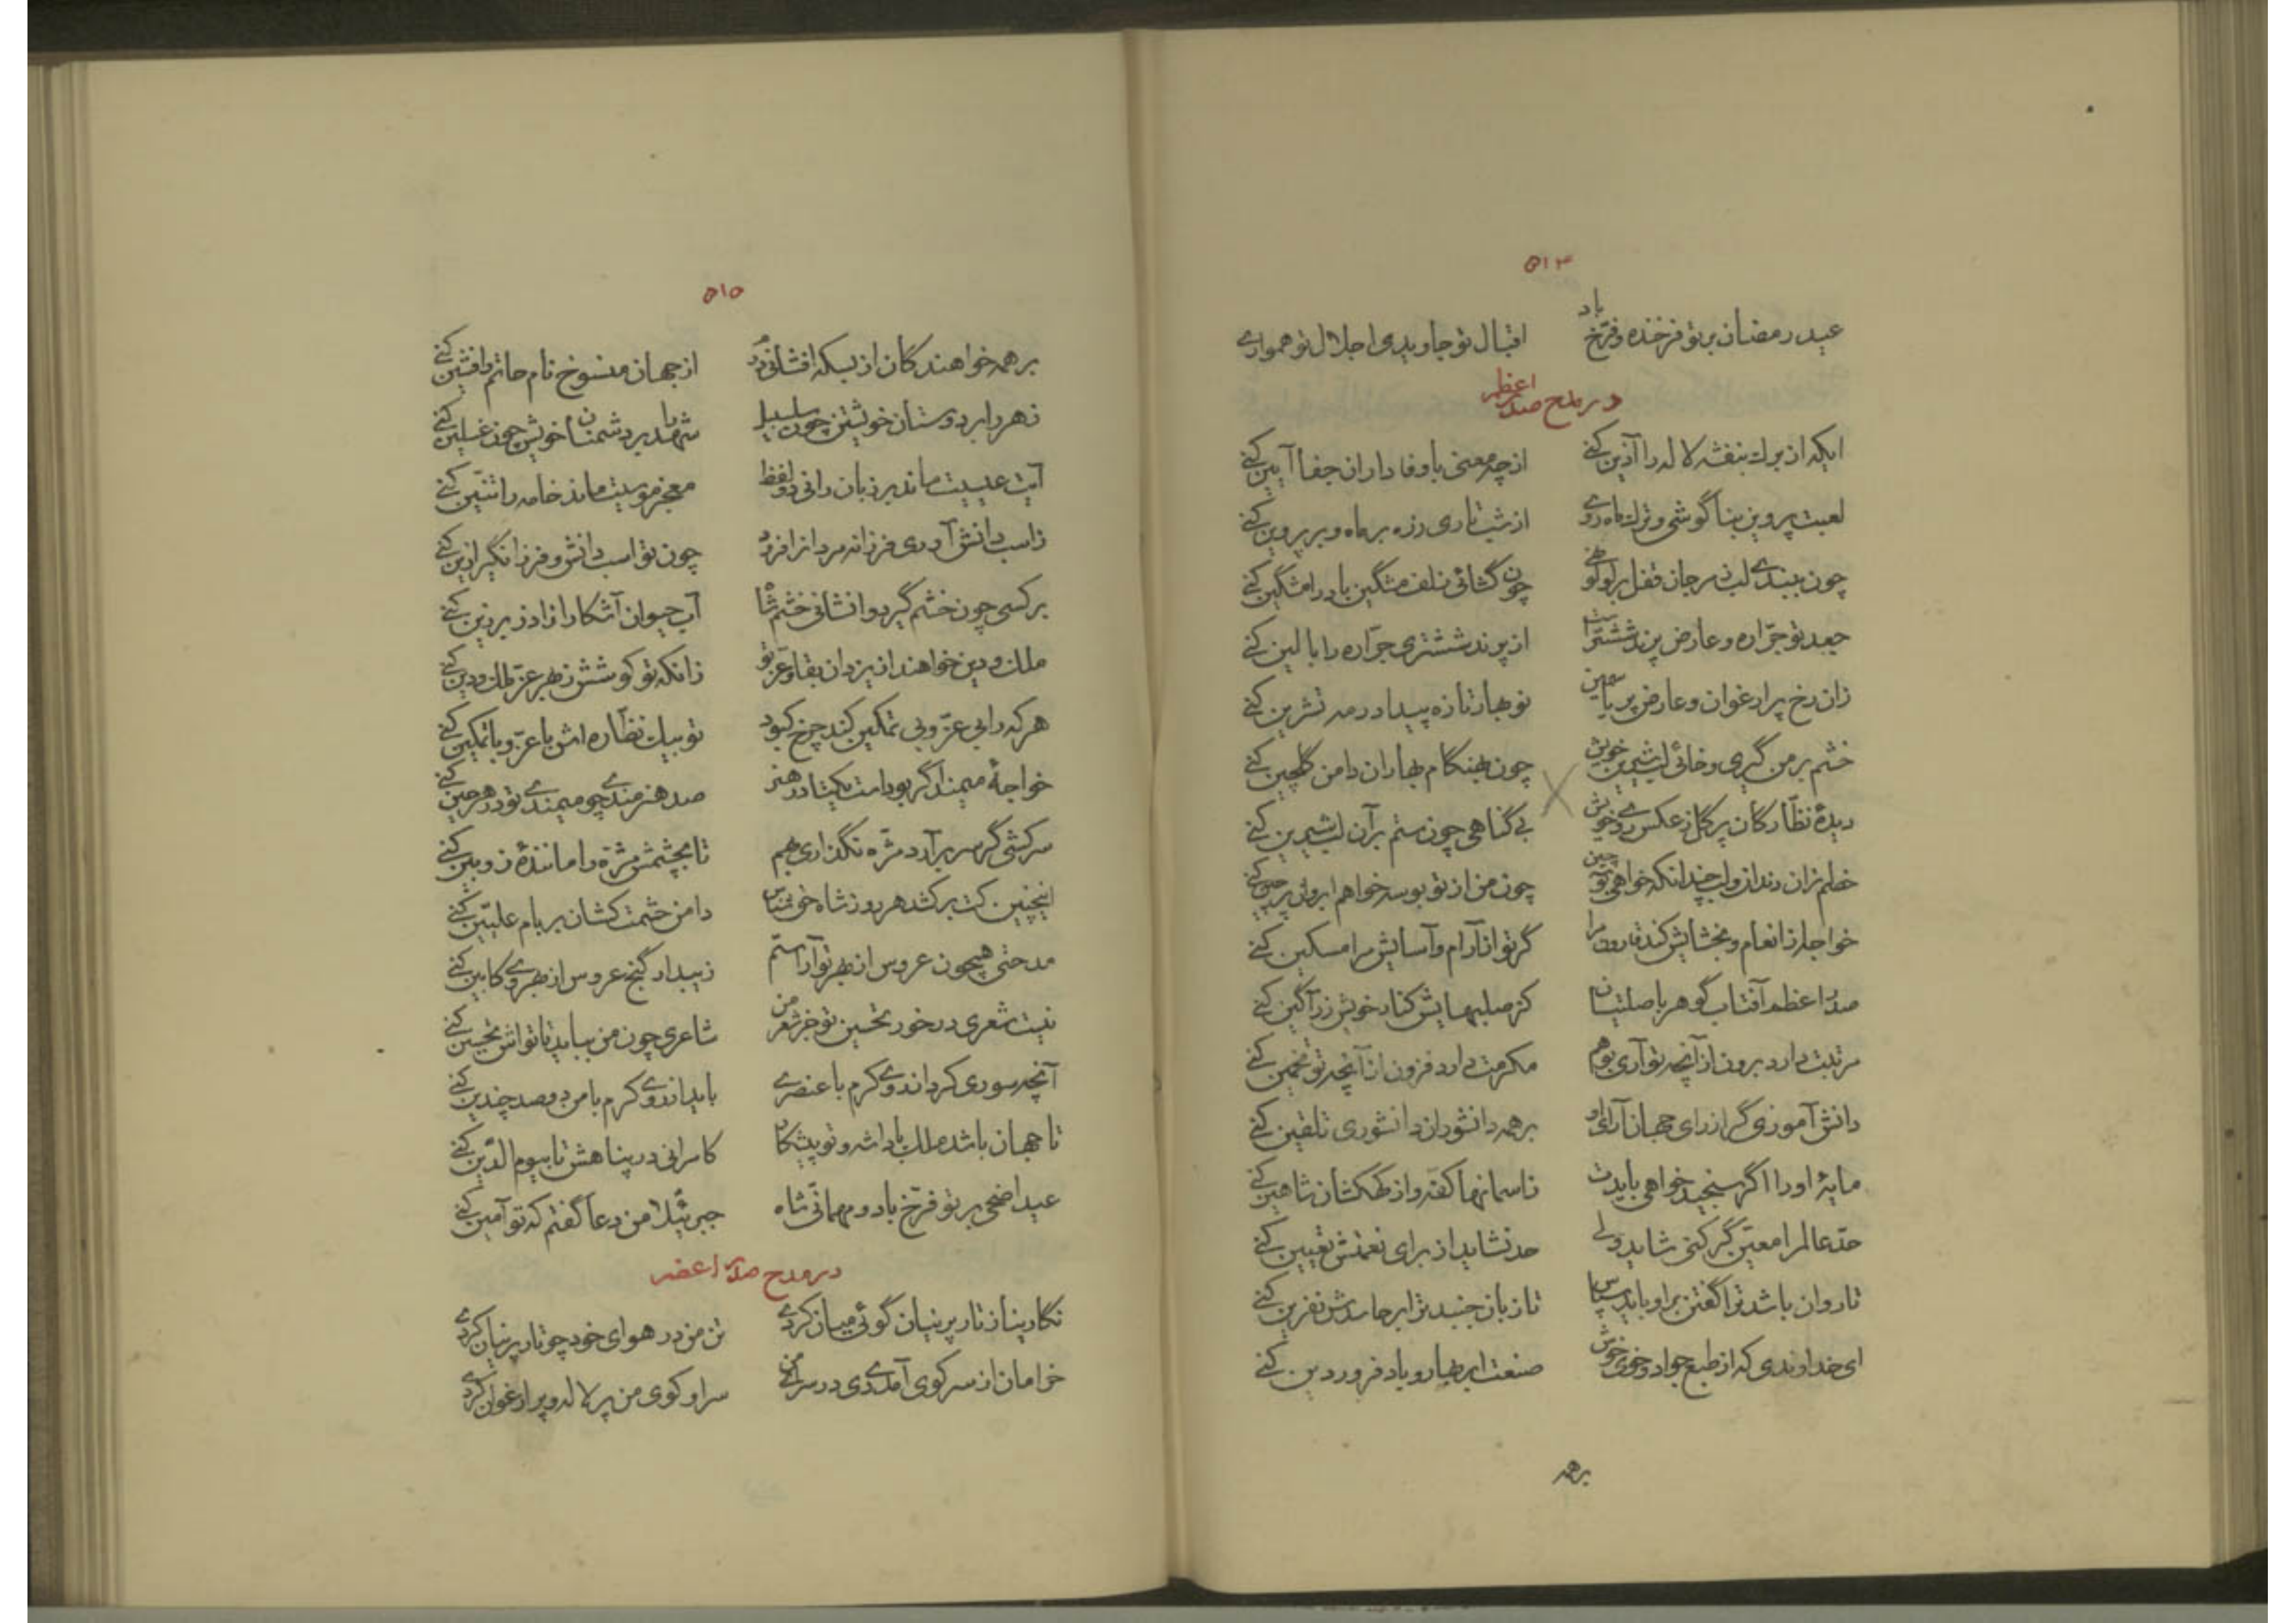 ۵۱۴
عید رمضان بر تو فرخنده و فرخ باد اقبال تو جاویدی اجلال تو همواری
در مدح صدر اعظم
ایکه از برک بنفشه لاله را آذین کنی از چه معنی با وفاداران جفا آیین کنی
لعبت پروین بناگوشی و ترک ماه روی از شب تاری زره بر ماه و بر پروین کنی
چون ببندی لب ز مرجان قفل بر لولو نهی چون گشائی زلف مشگین باد را مشگین کنی
جعد تو جراره و عارض پرند ششتر است از پرند ششتری جراره را بالین کنی
زان رخ پر ارغوان و عارض پر یاسمین نوبهار تازه پیدا در مه تشرین کنی
خشم بر من گیری و خائی لب شیرین خویش چون بهنگام بهاران دامن گلچین کنی
دیدهٔ نظارگان پر گل ز عکس روی خویش بی گناهی چون ستم بر آن لب شیرین کنی
خطم زان دندان و لب چندانکه خواهی تو چون من از تو بوسه خواهم ابروان پر چین کنی
خواجه از انعام و بخشایش کند قارون مرا گر تو از آرام و آسایش مرا مسکین کنی
صدر اعظم آفتاب گوهر باصلتیان کز صلیهایش کنار خویش زر آگین کنی
مرتبت دارد برون از آنچه تو آری بوهم مکرمت دارد فزون از آنچه تو تخمین کنی
دانش آموزی گر از رای جهان آرای او بر همه دانشوران دانشوری تلقین کنی
مایهٔ او را اگر سنجید خواهی بایدت ز آسمانها کفه و از کهکشان شاهین کنی
حد عالم را معین گر کنی شاید ولی حد نشاید از برای نعمتش تعیین کنی
تا روان باشد ترا گفتن بر او باید سپاس تا زبان جنبد ترا بر حاسدش نفرین کنی
ای خداوندی که از طبع جواد و خوی خوش صنعت ابر بهار و باد فروردین کنی
برهمه
۵۱۵
بر همه خواهندگان از بسکه افشانی درم از جهان منسوخ نام حاتم و افشین کنی
زهر را بر دوستان خویشتن چون سلسبیل شهد را بر دشمنان خویش چون غسلین کنی
آیت عیسیت ماند بر زبان رانی دو لفظ معجز موسیت ماند خامه را تنین کنی
ز اسب دانش آوری فرزانه مردان را فرود چون تو اسب دانش و فرزانگی را زین کنی
بر کسی چون خشم گیرد وانشانی خشم شاه آب حیوان آشکارا ز آذر برزین کنی
ملک و دین خواهند از یزدان بقا و عز تو زانکه تو کوشش ز بهر عز ملک و دین کنی
هر که را بی عز و بی تمکین کند چرخ کبود تو بیک نظاره اش با عز و با تمکین کنی
خواجهٔ میمند اگر بوداست یکتا در هنر صد هنرمندی چو میمندی تو در هر حین کنی
سرکشی گر سر برآرد مژه نگذاری بهم تا بچشمش مژه را مانندهٔ زوبین کنی
اینچنین کت بر کشد هر روز شاه حق شناس دامن حشمت کشان بر بام علیین کنی
مدحتی همچون عروس از بهر تو آراستم زیبد ار گنج عروس از بهر وی کابین کنی
نیست شعری در خور تحسین تو جز شعر من شاعری چون من بباید تا تواش تحسین کنی
آنچه سوری کرد از روی کرم با عنصری باید از روی کرم با من دو صد چندین کنی
تا جهان باشد ملک پادشه و تو پیشکار کامرانی در پناهش تا بیوم الدین کنی
عید اضحی بر تو فرخ باد و مهمانی شاه جبرئیلا من دعا گفتم که تو آمین کنی
در مدح صدر اعظم
نگارینا ز تار پرنیان گوئی میان کردی تن من در هوای خود چو تار پرنیان کردی
خرامان از سر کوی آمدی دی در سرای من سرا و کوی من پر لاله و پر ارغوان کردی